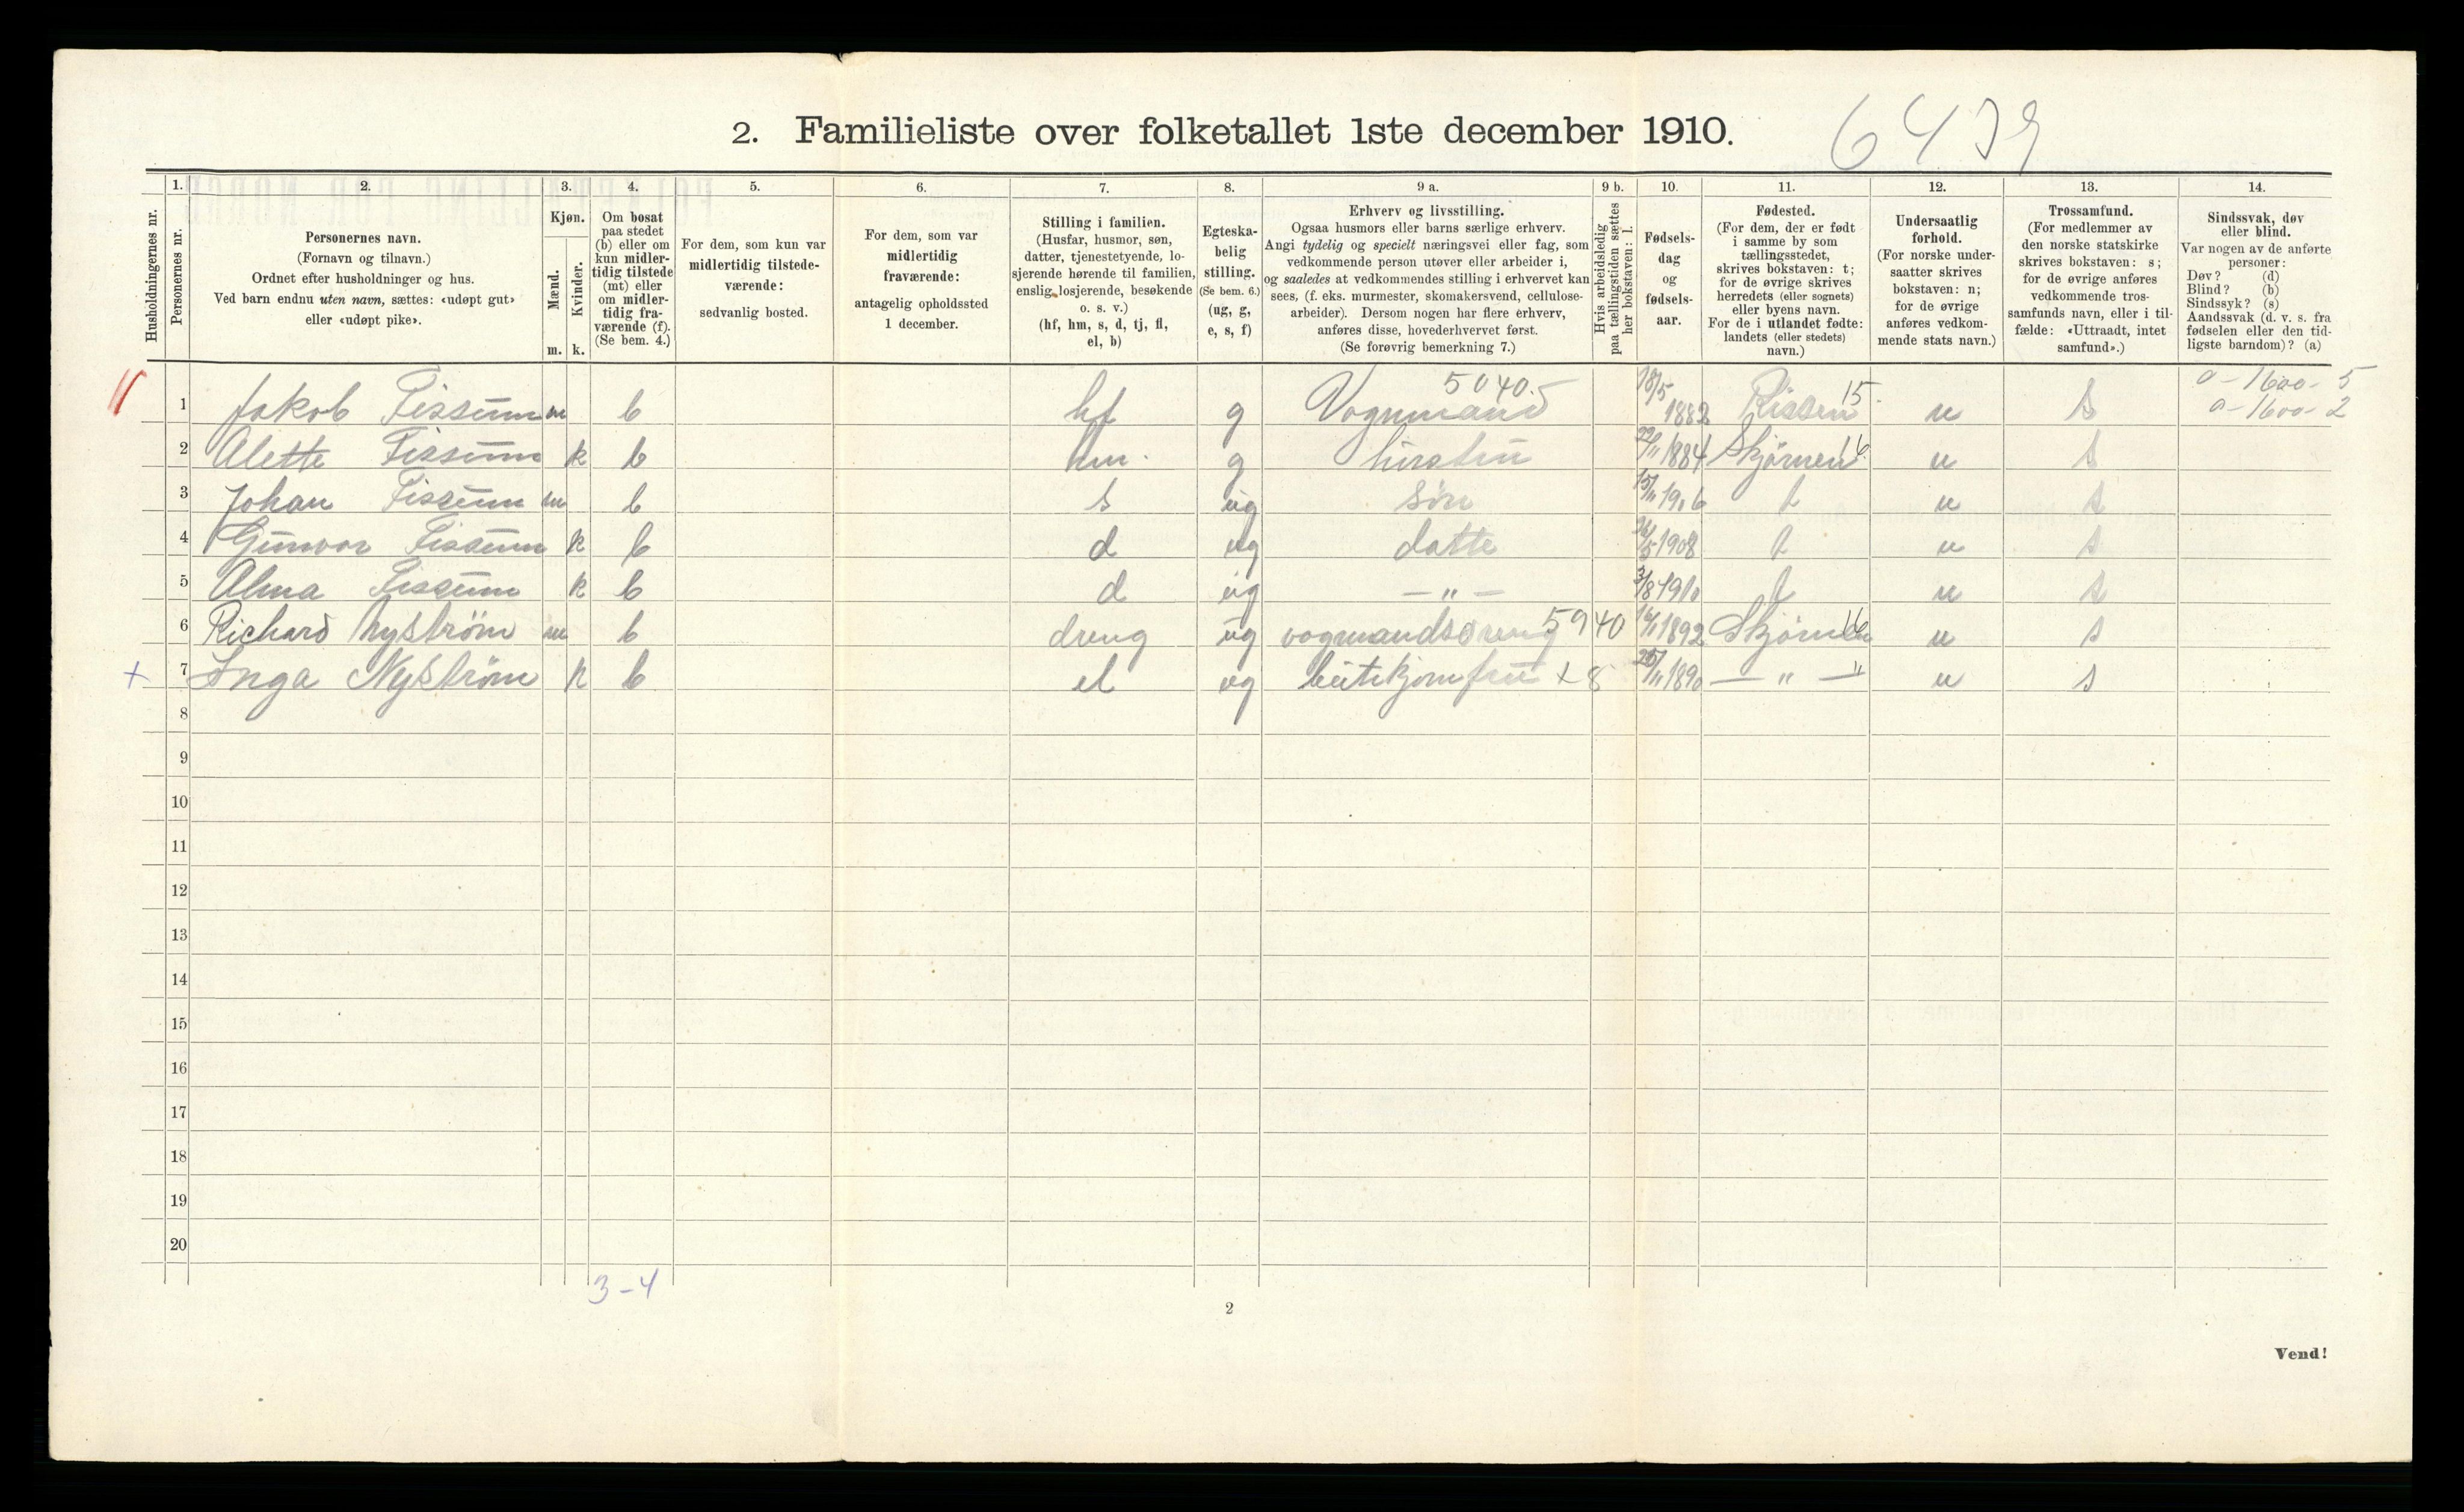 2. Familieliste over folketallet 1ste december 1910. 6479
Husholdningernes nr.
1. Personernes nr.
2. Personernes navn. (Fornavn og tilnavn.) Ordnet efter husholdninger og hus. Ved barn endnu uten navn, sættes: «udøpt gut» eller «udøpt pike».
3. Kjøn. Mænd. m. Kvinder. k.
4. Om bosat paa stedet (b) eller om kun midlertidig tilstede (mt) eller om midlertidig fraværende (f). (Se bem. 4.)
5. For dem, som kun var midlertidig tilstedeværende: sedvanlig bosted.
6. For dem, som var midlertidig fraværende: antagelig opholdssted 1 december.
7. Stilling i familien. (Husfar, husmor, søn, datter, tjenestetyende, losjerende hørende til familien, enslig losjerende, besøkende o. s. v.) (hf, hm, s, d, tj, fl, el, b)
8. Egteskabelig stilling. (Se bem. 6.) (ug, g, e, s, f)
9 a. Erhverv og livsstilling. Ogsaa husmors eller barns særlige erhverv. Angi tydelig og specielt næringsvei eller fag, som vedkommende person utøver eller arbeider i, og saaledes at vedkommendes stilling i erhvervet kan sees, (f. eks. murmester, skomakersvend, cellulosearbeider). Dersom nogen har flere erhverv, anføres disse, hovederhvervet først. (Se forøvrig bemerkning 7.)
9 b. Hvis arbeidsledig paa tællingstiden sættes her bokstaven: l.
10. Fødselsdag og fødselsaar.
11. Fødested. (For dem, der er født i samme by som tællingsstedet, skrives bokstaven: t; for de øvrige skrives herredets (eller sognets) eller byens navn. For de i utlandet fødte: landets (eller stedets) navn.)
12. Undersaatlig forhold. (For norske undersaatter skrives bokstaven: n; for de øvrige anføres vedkommende stats navn.)
13. Trossamfund. (For medlemmer av den norske statskirke skrives bokstaven: s; for de øvrige anføres vedkommende trossamfunds navn, eller i tilfælde: «Uttraadt, intet samfund».)
14. Sindssvak, døv eller blind. Var nogen av de anførte personer: Døv? (d) Blind? (b) Sindssyk? (s) Aandssvak (d. v. s. fra fødselen eller den tidligste barndom)? (a)
1 Jakob Fissum m b hf g Vognmand 5040.5 18/5 1882 Rissen 15. n s a-1600-5 a-1600-2
2 Alette Fissum k b hm. g hustru 22/11 1884 Skjørnen 16. n s
3 Johan Fissum m b s ug søn 15/11 1906 t n s
4 Gunvor Fissum k b d ug datte 26/5 1908 t n s
5 Alma Fissum k b d ug — " — 3/8 1910 t n s
6 Richard Nystrøm m b dreng ug vogmandsdreng 5940 16/1 1892 Skjørnen 16 n s
+ 7 Inga Nystrøm k b el ug butikjomfru + 8 25/11 1890 — " — n s
8
9
10
11
12
13
14
15
16
17
18
19
20
3-4
2
Vend!